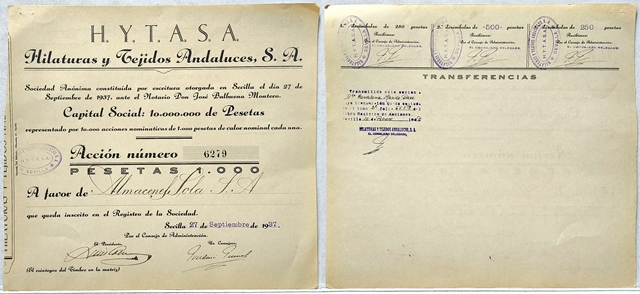 H.Y.T.A.S.A.
Hilaturas y Tejidos Andaluces, S. A.
Sociedad Anónima constituida por escritura otorgada en Sevilla el día 27
de Septiembre de 1937, ante el Notario Don José Balbuena Montero.
Capital Social: 10.000.000 de Pesetas
representado por 10.000 acciones nominativas de 1.000 pesetas de valor nominal cada una.
Acción número 6279
PESETAS 1.000
A favor de Almacenes Sola S.A
que queda inscrito en el Registro de la Sociedad.
Sevilla 27 de Septiembre de 1937.
Por el Consejo de Administración.
El Presidente, Un Consejero,
(El reintegro del Timbre en la matriz)
HYTASA
SEVILLA
de 250 pesetas
Recibimos
Por el Consejo de Administración.
EL CONSEJERO DELEGADO,
de 500 pesetas
Recibimos
Por el Consejo de Administración.
EL CONSEJERO DELEGADO,
de 250 pesetas
Recibimos
Por el Consejo de Administración.
EL CONSEJERO DELEGADO,
TRANSFERENCIAS
Transmitida esta acción a
Libro Registro de Acciones.
HILATURAS Y TEJIDOS ANDALUCES, S. A.
EL CONSEJERO DELEGADO,